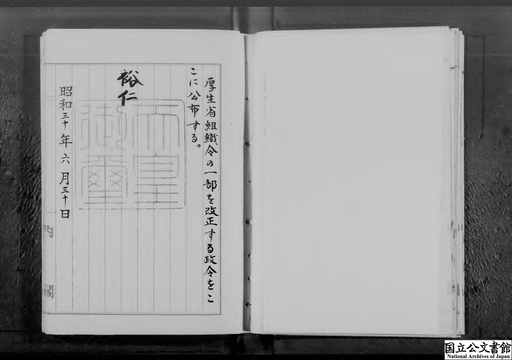 厚生省組織令の一部を改正する政令をこ
こに公布する。
裕仁
天皇
御璽
昭和三十年六月三十日
内閣
国立公文書館
National Archives of Japan